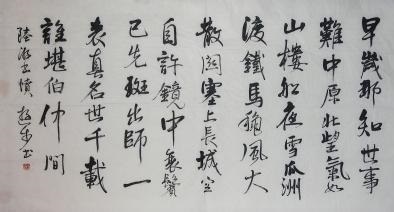 早歲那知世事
難中原北望氣如
山樓船夜雪瓜洲
渡鐵馬秋風大
散關塞上長城空
自許鏡中衰鬢
已先斑出師一
表真名世千載
誰堪伯仲間
陸游書憤 書